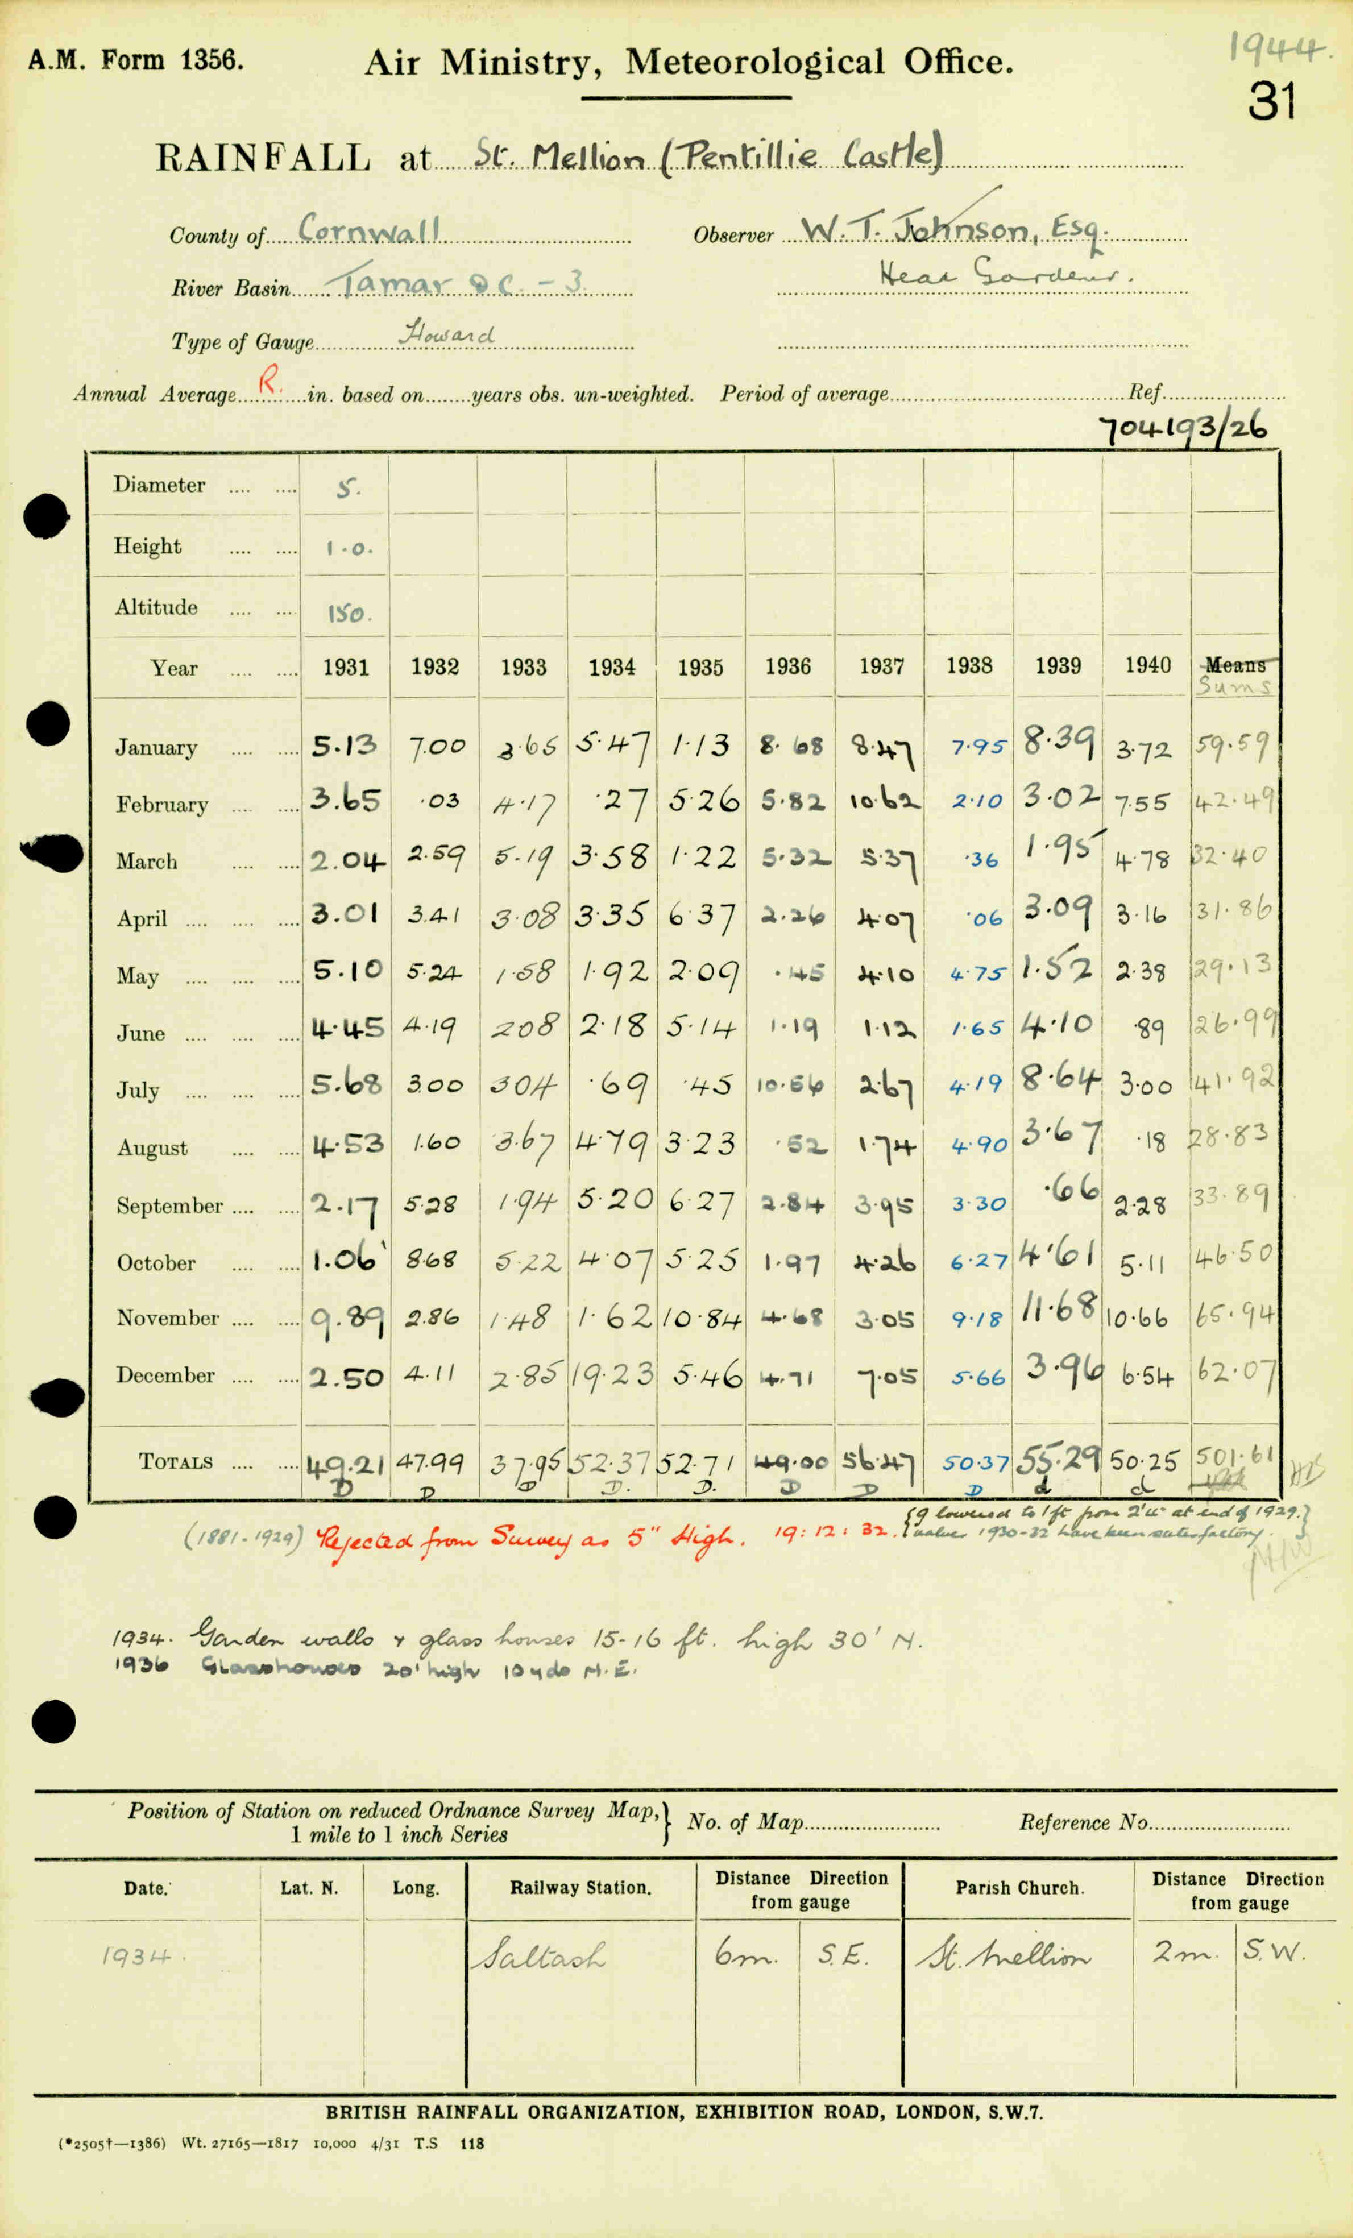 1944.
A.M. Form 1356. Air Ministry, Meteorological Office.
31
RAINFALL at St. Mellion (Pentillie Castle)
County of Cornwall Observer W. T. Johnson, Esq.
River Basin Tamar DC. - 3. Head Gardener.
Type of Gauge Howard
Annual Average R. in. based on years obs. un-weighted. Period of average Ref.
704193/26
Diameter 5.
Height 1.0.
Altitude 150.
Year 1931 1932 1933 1934 1935 1936 1937 1938 1939 1940 Means
Sums
January 5.13 7.00 3.65 5.47 1.13 8.68 8.47 7.95 8.39 3.72 59.59
February 3.65 .03 4.17 .27 5.26 5.82 10.62 2.10 3.02 7.55 42.49
March 2.04 2.59 5.19 3.58 1.22 5.32 5.37 .36 1.95 4.78 32.40
April 3.01 3.41 3.08 3.35 6.37 2.26 4.07 .06 3.09 3.16 31.86
May 5.10 5.24 1.58 1.92 2.09 .45 4.10 4.75 1.52 2.38 29.13
June 4.45 4.19 2.08 2.18 5.14 1.19 1.12 1.65 4.10 .89 26.99
July 5.68 3.00 3.04 .69 .45 10.56 2.67 4.19 8.64 3.00 41.92
August 4.53 1.60 3.67 4.79 3.23 .52 1.74 4.90 3.67 .18 28.83
September 2.17 5.28 1.94 5.20 6.27 2.84 3.95 3.30 .66 2.28 33.89
October 1.06 8.68 5.22 4.07 5.25 1.97 4.26 6.27 4.61 5.11 46.50
November 9.89 2.86 1.48 1.62 10.84 4.68 3.05 9.18 11.68 10.66 65.94
December 2.50 4.11 2.85 19.23 5.46 4.71 7.05 5.66 3.96 6.54 62.07
TOTALS 49.21 47.99 37.95 52.37 52.71 49.00 56.47 50.37 55.29 50.25 501.61
D D D D. D. D D D d d
{g lowered to 1 ft from 2'4" at end of 1929.}
(1881-1929) Rejected from Survey as 5" High. 19:12:32. {values 1930-32 have been satisfactory.}
1934. Garden walls & glass houses 15-16 ft. high 30' N.
1936 Glasshouses 20' high 10 yds N.E.
Position of Station on reduced Ordnance Survey Map, 1 mile to 1 inch Series } No. of Map Reference No.
Date. Lat. N. Long. Railway Station. Distance Direction from gauge Parish Church. Distance Direction from gauge
1934. Saltash 6m. S.E. St. Mellion 2m. S.W.
BRITISH RAINFALL ORGANIZATION, EXHIBITION ROAD, LONDON, S.W.7.
(*2505†—1386) Wt. 27165—1817 10,000 4/31 T.S 118